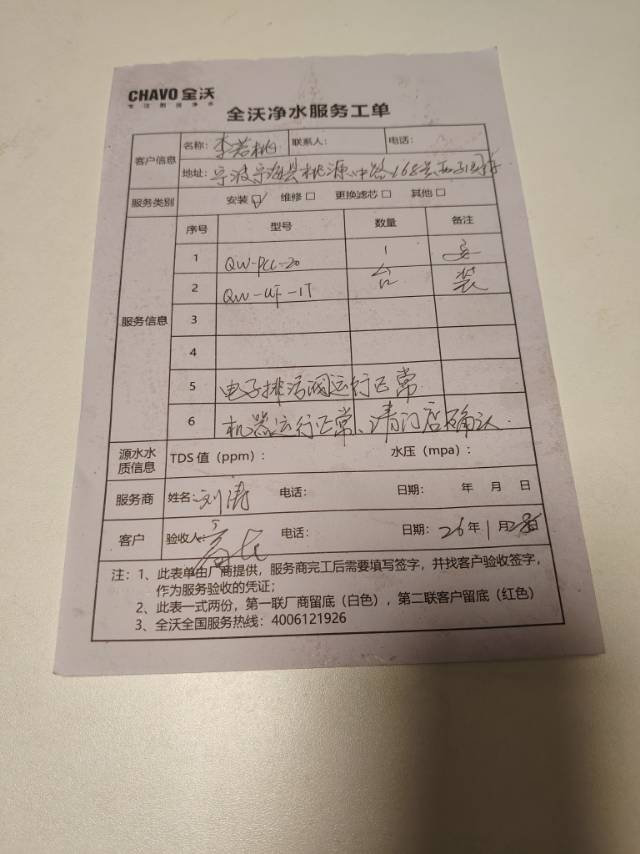 CHAVO 全沃
专注商用净水
全沃净水服务工单
客户信息 名称: 李若桃 联系人: 电话:
地址: 宁波宁海县桃源中路168号
服务类别 安装 ☑ 维修 □ 更换滤芯 □ 其他 □
服务信息 序号 型号 数量 备注
1 QW-PCC-20 1 安
2 QW-UF-1T 台 装
3
4
5 电子排污阀运行正常
6 机器运行正常、请门店确认.
源水水质信息 TDS 值(ppm): 水压(mpa):
服务商 姓名: 刘涛 电话: 日期: 年 月 日
客户 验收人: 电话: 日期: 26年1月28日
注: 1、此表单由厂商提供,服务商完工后需要填写签字,并找客户验收签字,
作为服务验收的凭证;
2、此表一式两份,第一联厂商留底(白色),第二联客户留底(红色)
3、全沃全国服务热线:4006121926